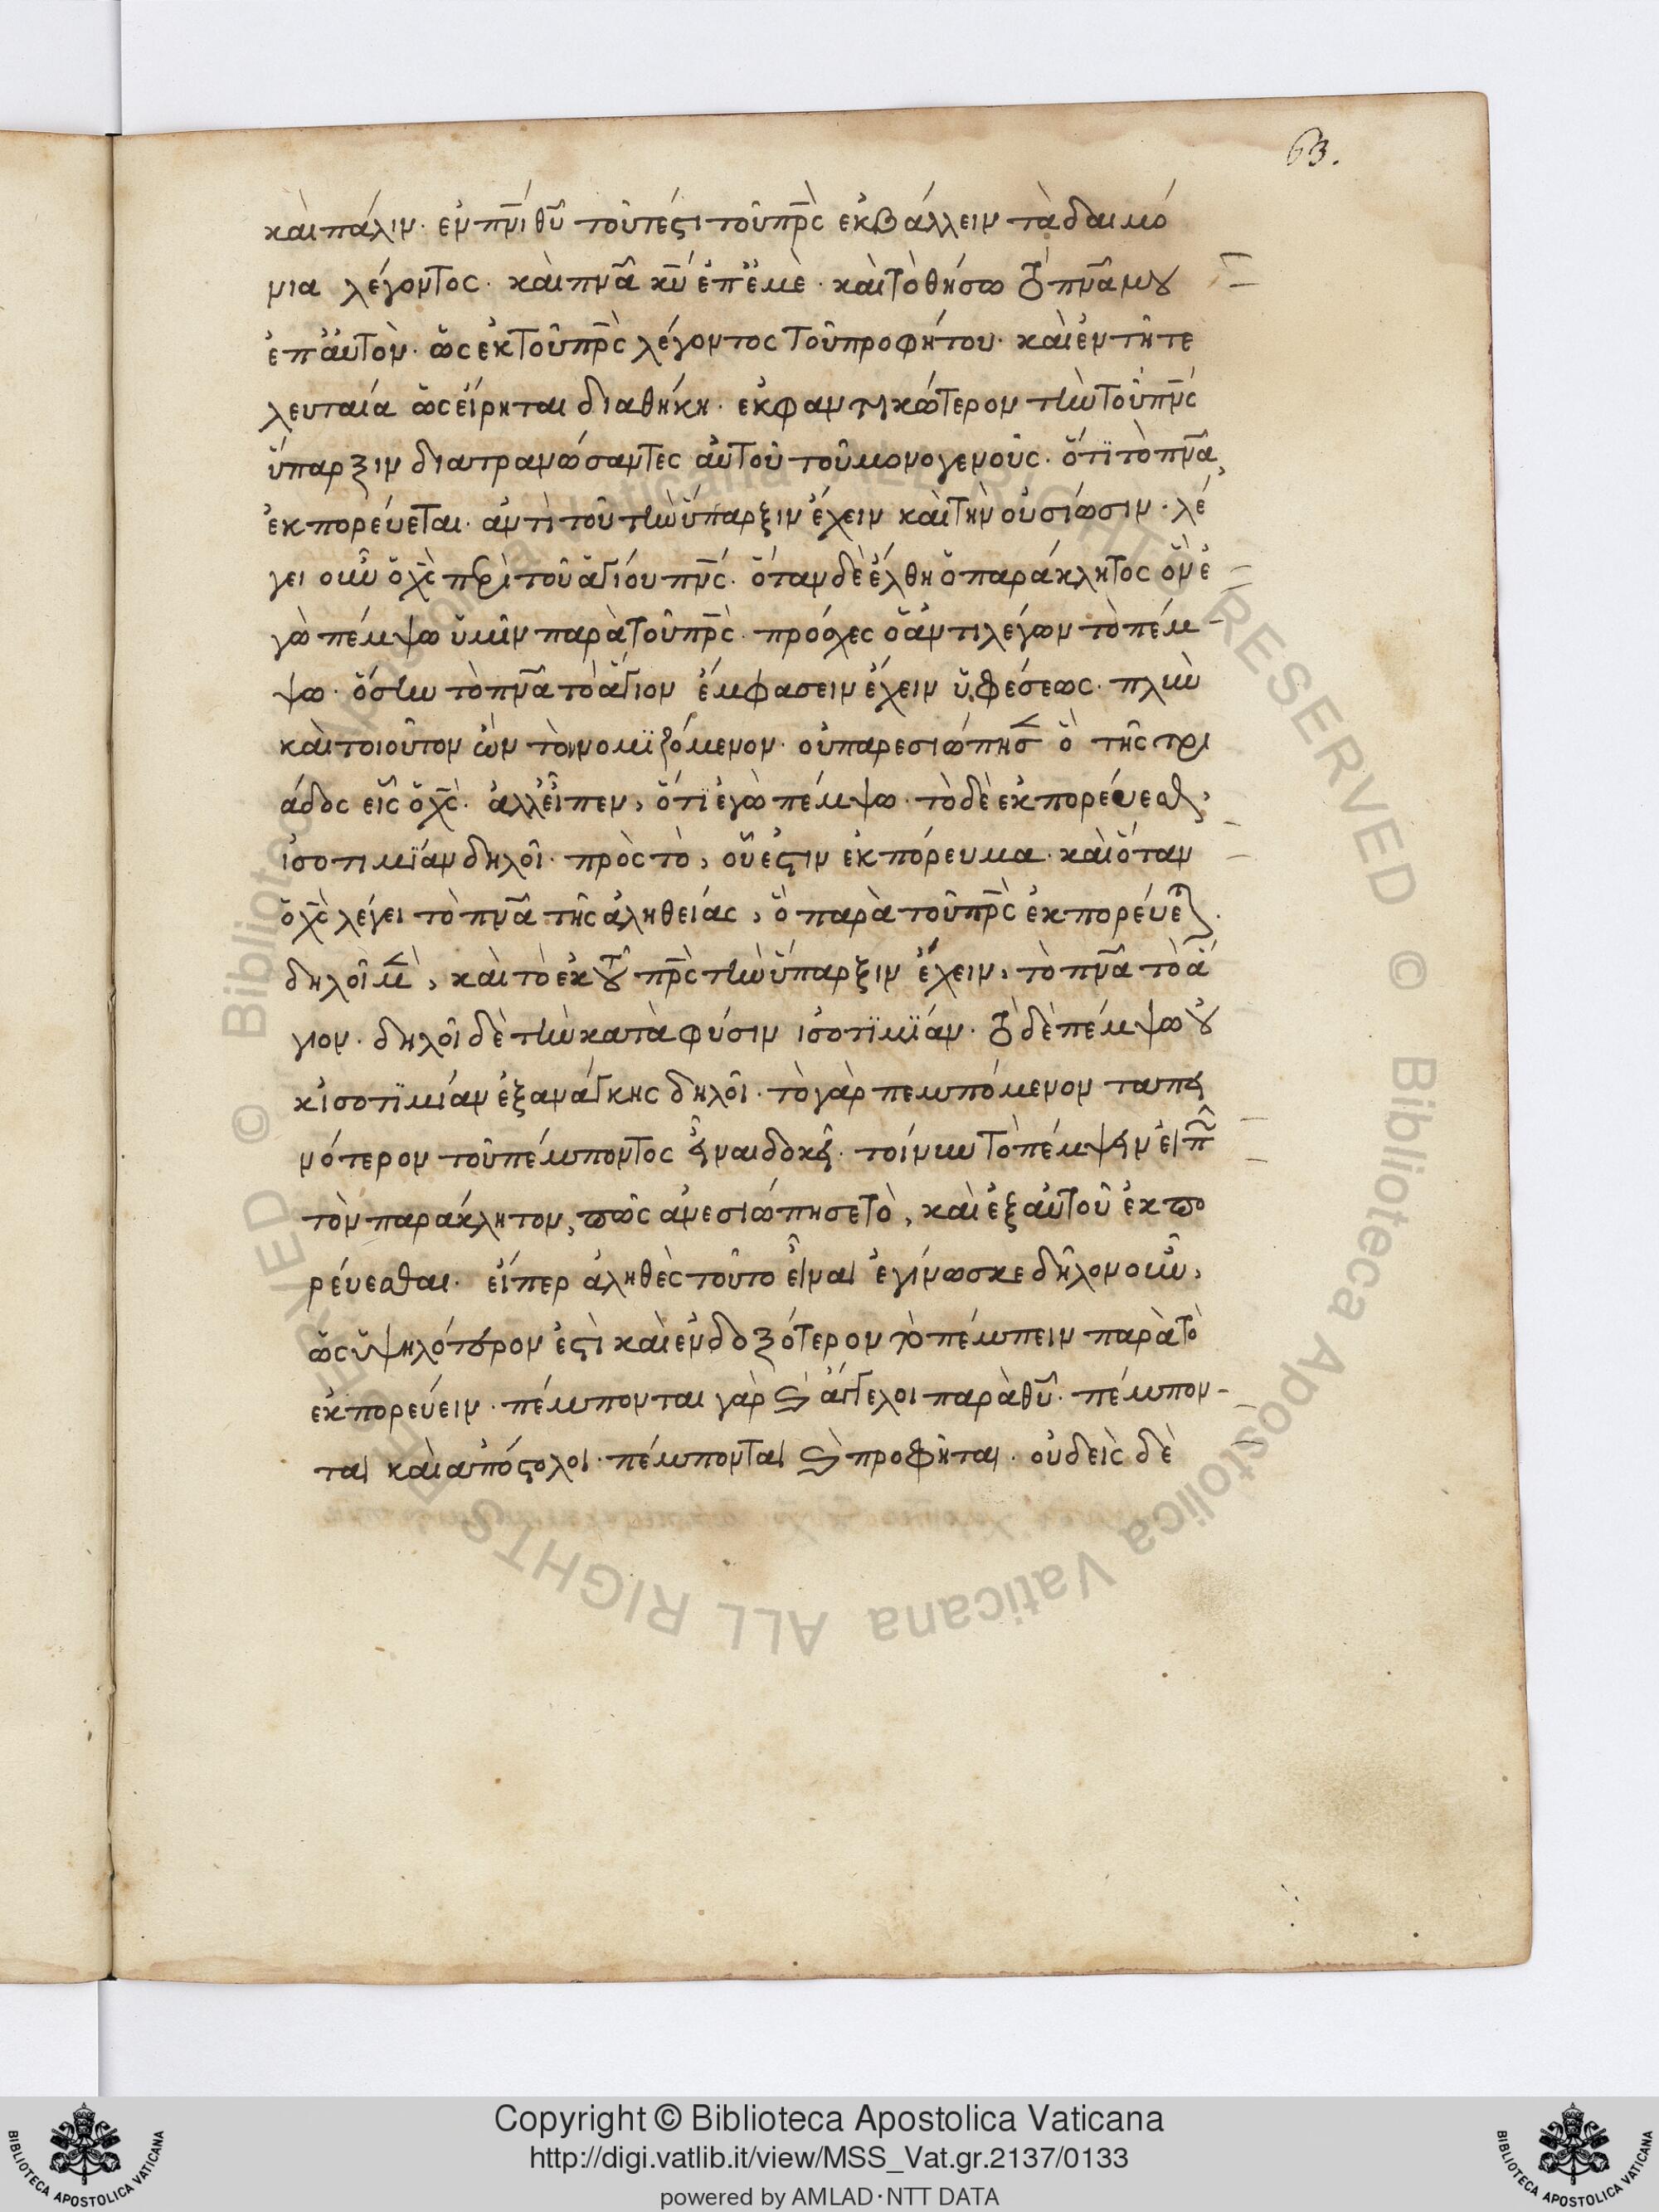 63.
καὶ πάλιν· ἐν πν̅ι θυ̅ τοῦτέστι τοῦ πρ̅ς ἐκβάλλειν τὰ δαιμό
νια λέγοντος· καὶ πνα̅ κυ̅ ἐπ' ἐμὲ· καὶ τὸ θήσω τὸ πνα̅ μου
ἐπ' αὐτὸν· ὡς ἐκ τοῦ πρ̅ς λέγοντος τοῦ προφήτου· καὶ ἐν τῇ τε
λευταία ὡς εἴρηται διαθήκη· ἐκφαντικώτερον τὴν τοῦ πν̅ς
ὕπαρξιν διατρανώσαντες αὐτοῦ τοῦ μονογενοῦς· ὅτϊ τὸ πνα̅
ἐκπορεύεται· ἀντὶ τοῦ τὴν ὕπαρξιν ἔχειν καὶ τὴν οὐσίωσιν· λέ
γει οὖν ὁ χς̅ περὶ τοῦ ἁγίου πν̅ς· ὅταν δὲ ἔλθη ὁ παράκλητος ὃν ἐ
γὼ πέμψω ὑμῖν παρὰ τοῦ πρ̅ς· πρόσχες ὁ ἀντιλέγων τὸ πέμ-
ψω· ὅστην τὸ πνα̅ τὸ ἅγιον ἔμφασειν ἔχειν ὑφέσεως· πλὴν
καὶ τοιοῦτον ὢν τὸ νομϊζόμενον· οὐ παρεσιώπησ ὁ τῆς τρι
άδος εἷς ὁ χς̅· ἀλλ' εἶπεν, ὅτϊ ἐγὼ πέμψω· τὸ δὲ ἐκπορεύεσθ,
ἰσοτιμΐαν δηλοῖ· πρὸς τὸ, οὗ ἐστιν ἐκπόρευμα· καὶ ὅταν
ὁ χς̅ λέγει τὸ πνα̅ τῆς ἀληθείας, ὃ παρὰ τοῦ πρ̅ς ἐκπορεύετ·
δηλοῖ μὲν, καὶ τὸ ἐκ τοῦ πρ̅ς τὴν ὕπαρξιν ἔχειν, τὸ πνα̅ τὸ ἅ
γιον· δηλοῖ δὲ τὴν κατὰ φύσιν ἰσοτϊμΐαν· τὸ δὲ πέμψω οὐ
κ ἰσοτϊμίαν ἐξ ανάγκης δηλοῖ· τὸ γὰρ πεμπόμενον ταπει
νότερον τοῦ πέμποντος εἶναι δοκεῖ· τοίνυν τὸ πέμψειν εἰπ
τὸν παράκλητον, πῶς ἀνεσιώπησε τὸ, καὶ ἐξ αὐτοῦ ἐκπο
ρεύεσθαι· εἴπερ ἀληθὲς τοῦτο εἶναι ἐγίνωσκε δῆλον οὖν,
ὡς ὑψηλότερον ἐστὶ καὶ ἐνδοξότερον τὸ πέμπειν παρὰ τὸ
ἐκπορεύειν· πέμπονται γὰρ καὶ ἄγγελοι παρὰ θυ̅· πέμπον-
ται καὶ απόστολοι· πέμπονται καὶ προφῆται· οὐδεὶς δὲ
© Biblioteca Apostolica Vaticana ALL RIGHTS RESERVED
Copyright © Biblioteca Apostolica Vaticana
http://digi.vatlib.it/view/MSS_Vat.gr.2137/0133
powered by AMLAD·NTT DATA
BIBLIOTECA APOSTOLICA VATICANA
BIBLIOTECA APOSTOLICA VATICANA